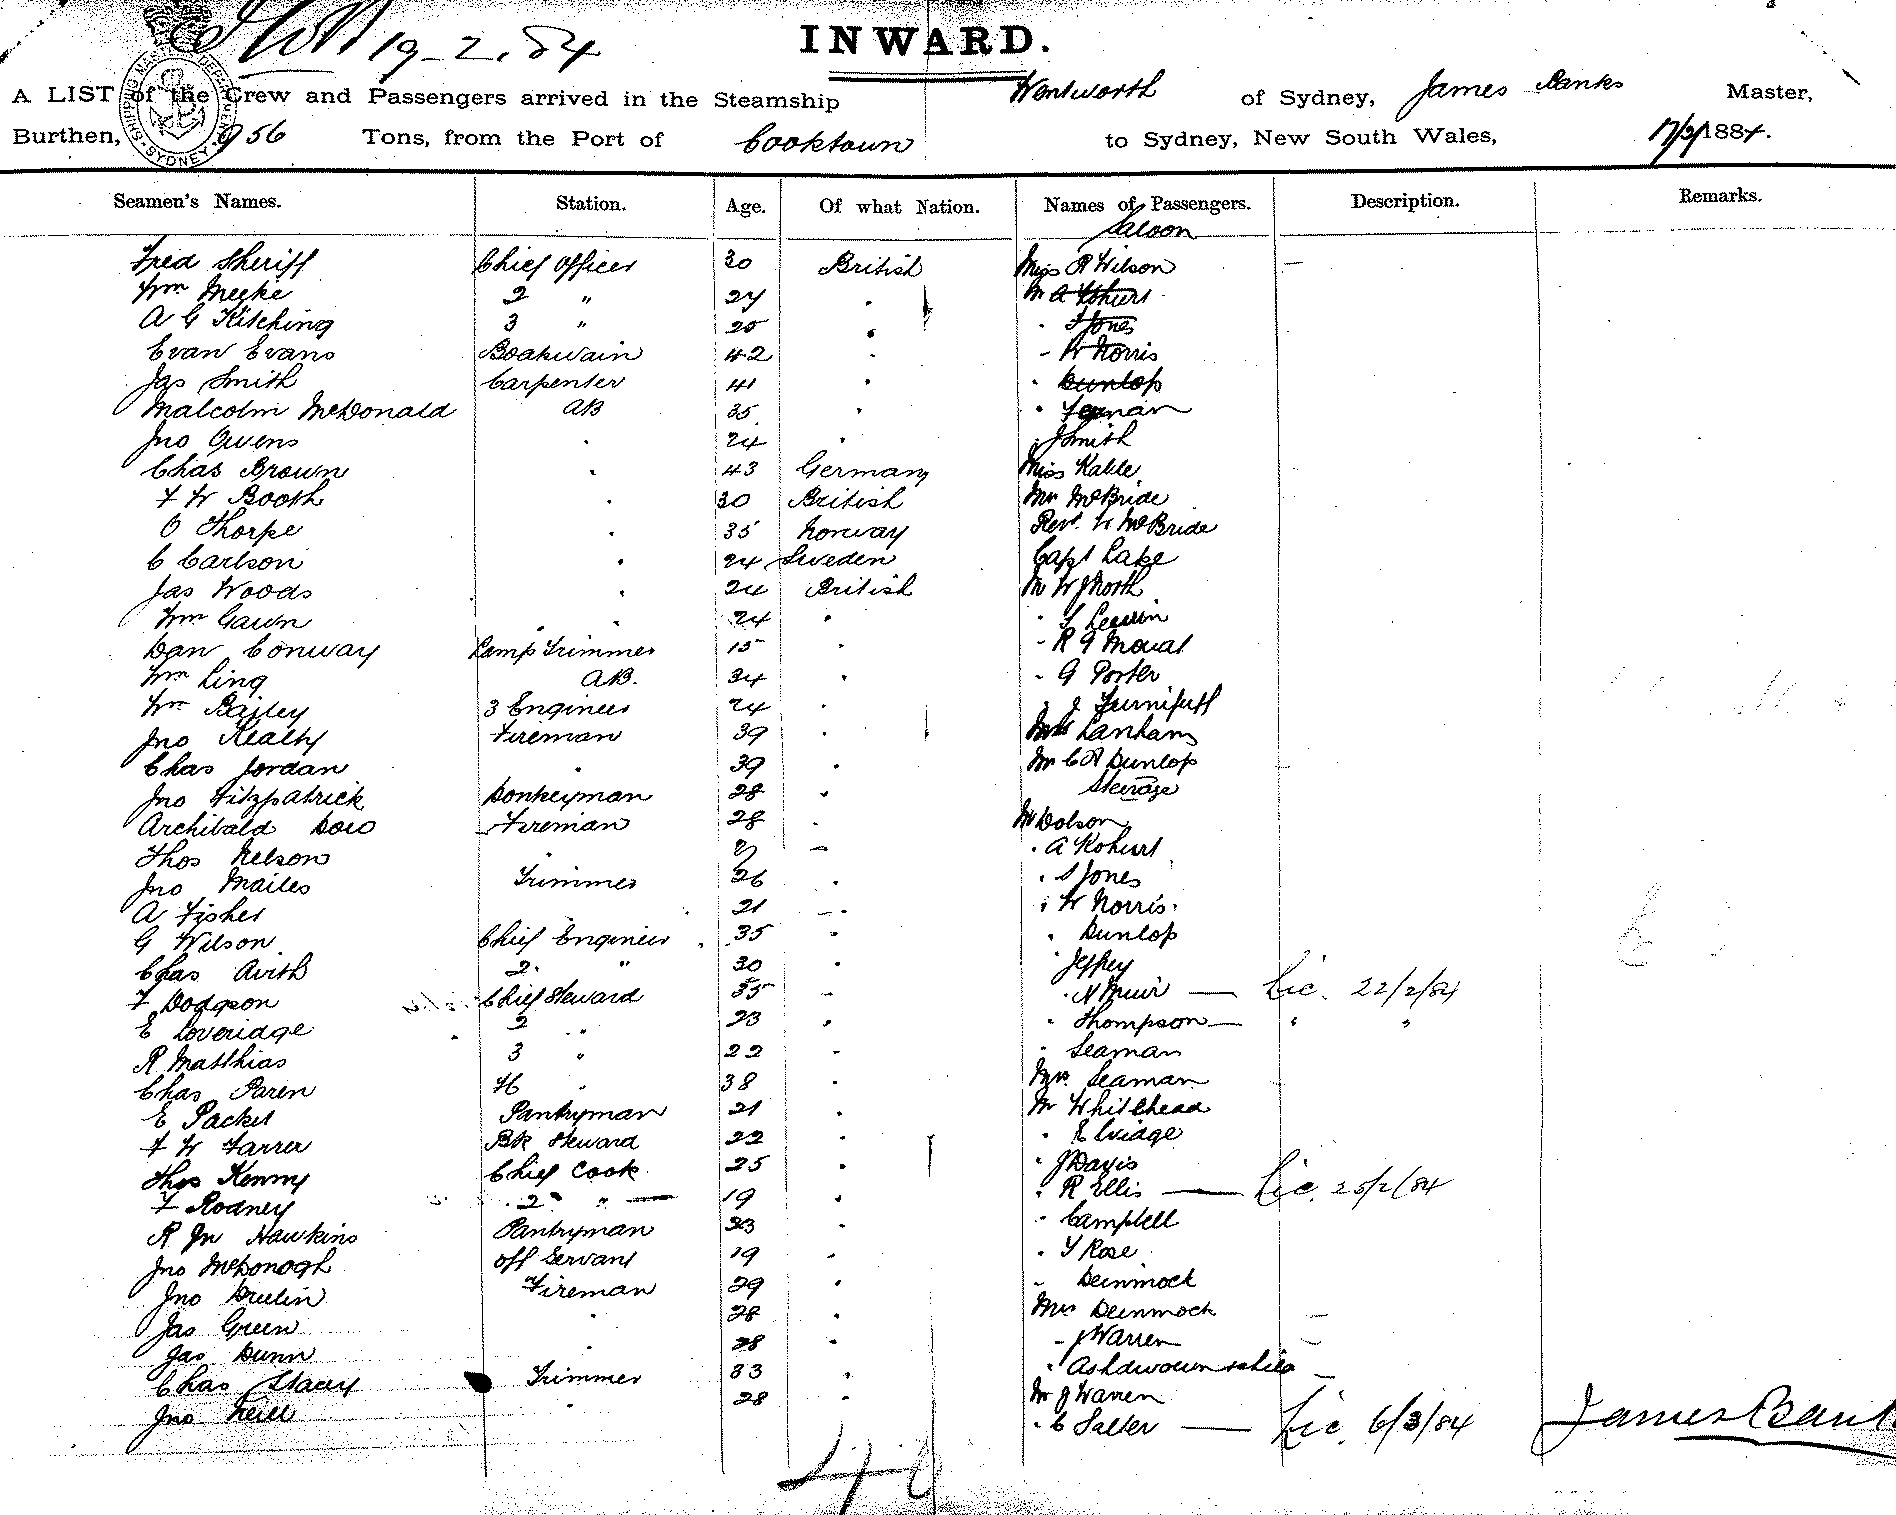 19-2.84
INWARD.
A LIST of the Crew and Passengers arrived in the Steamship Wentworth of Sydney, James Banks Master,
Burthen, 956 Tons, from the Port of Cooktown to Sydney, New South Wales, 17/2/1884.
SHIPPING MASTER'S DEPARTMENT SYDNEY
Seamen's Names. Station. Age. Of what Nation. Names of Passengers. Description. Remarks.
Saloon
Fred Sheriff Chief Officer 30 British Miss R Wilson —
Wm Meeke 2 " 24 . Mr A Kohurt
A G Kitching 3 " 25 . . S Jones
Evan Evans Boatswain 42 . - W Norris
Jas Smith Carpenter 41 . . Dunlop
Malcolm McDonald AB 35 .
Jno Owens . 24 . . J Smith
Chas Brown . 43 Germany Miss Kable
F W Booth . 30 British Mrs McBride
O Thorpe . 35 Norway Revd. W McBride
C Carlson . 24 Sweden Capt Lake
Jas Woods . 24 British Mr W J North
Wm Gawn . 24 . .
Dan Conway Lamp Trimmer 15 . - R G Mowat
Wm Ling AB. 34 . - G Porter
Wm Bailey 3 Engineer 24 .
Jno Kealty Fireman 39 . Lanham
Chas Jordan . 39 . Mr C A Dunlop
Steerage
Jno Fitzpatrick Donkeyman 28 .
Archibald Fireman 28 . Mr Dolson
Thos Nelson — . A Kohurt
Jno Mailes Trimmer 26 . . S Jones
A Fisher 21 . . W Norris
G Wilson Chief Engineer 35 . . Dunlop
Chas 2 " 30 . Jeffrey
F Dodgson Chief Steward 35 - . N Muir — Lic. 22/2/84
E Loveridge 2 " 23 . . Thompson — " "
R Matthias 3 " 22 . . Seaman
Chas Paren 4 . 38 . Mrs Seaman
E Packet Pantryman 21 . Mr Whitehead
F W Farrer Bk Steward 22 . . Elvidge
Thos Kenny Chief Cook 25 . . J Davis
F Rodney 2 " — 19 . . R Ellis — Lic. 25/2/84
R Jn Hawkins Pantryman 23 . . Campbell
Jno McDonogh off Servant 19 . . Y Rose
Jno Fireman 29 . - Deinmock
Jas Green . 28 . Mrs Deinmock —
Jas Dunn . 28 . - J Warren —
Chas Stacey Trimmer 33 . —
Jno Neill . 28 . Mr J Warren
. C Salter — Lic. 6/3/84 James Banks